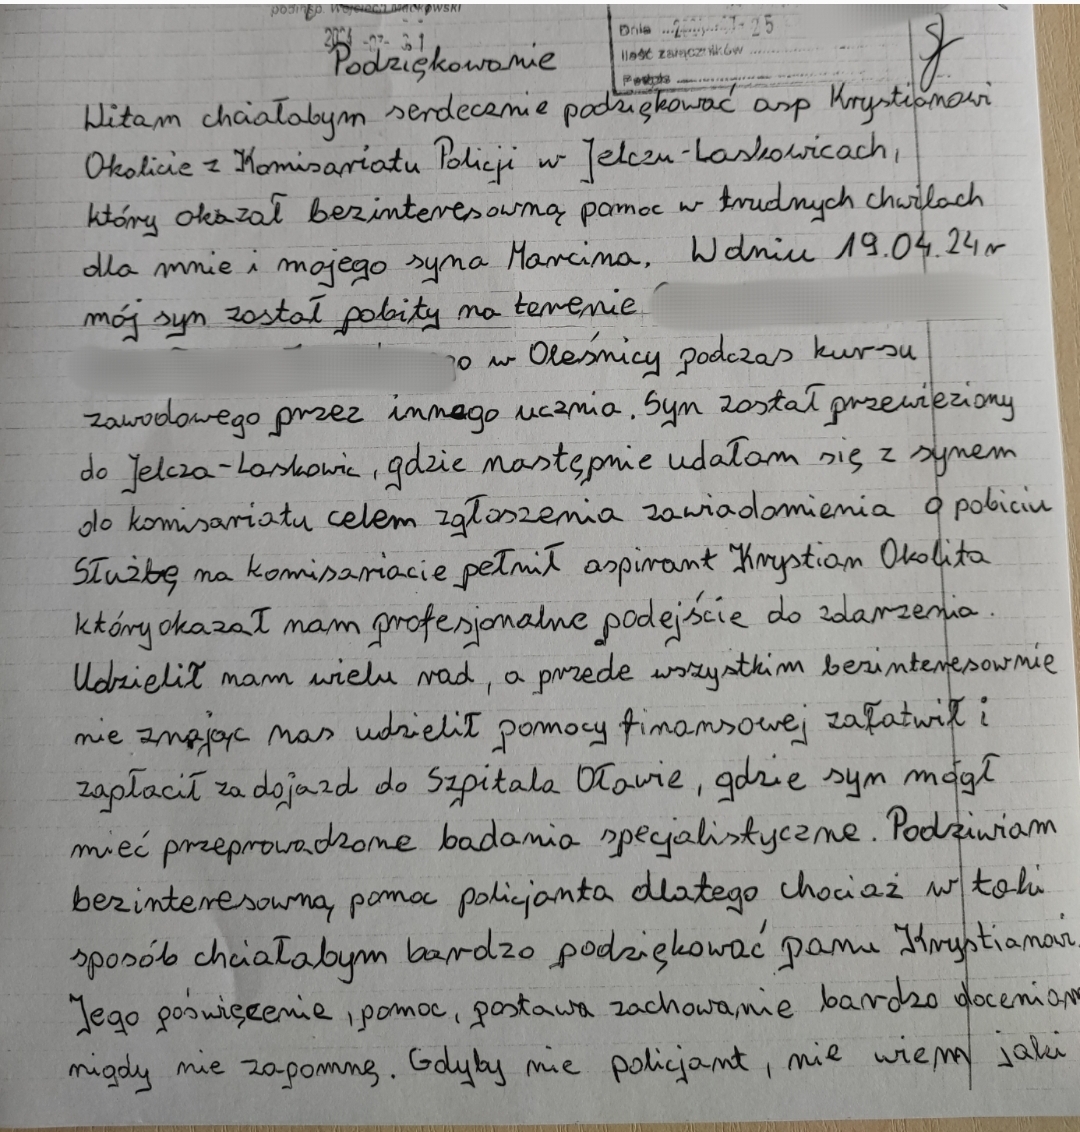 podinsp. Wojciech
-07- 31
Dnia
25
Ilość załączników
Podpis
Podziękowanie
Witam chciałabym serdecznie podziękować asp Krystianowi
Okolicie z Komisariatu Policji w Jelczu-Laskowicach,
który okazał bezinteresowną pomoc w trudnych chwilach
dla mnie i mojego syna Marcina. W dniu 19.04.24r
mój syn został pobity na terenie
w Oleśnicy podczas kursu
zawodowego przez innego ucznia. Syn został przewieziony
do Jelcza-Laskowic, gdzie następnie udałam się z synem
do komisariatu celem zgłoszenia zawiadomienia o pobiciu
Służbę na komisariacie pełnił aspirant Krystian Okolita
który okazał nam profesjonalne podejście do zdarzenia.
Udzielił nam wielu rad, a przede wszystkim bezinteresownie
nie znając nas udzielił pomocy finansowej załatwił i
zapłacił za dojazd do Szpitala Oławie, gdzie syn mógł
mieć przeprowadzone badania specjalistyczne. Podziwiam
bezinteresowną pomoc policjanta dlatego chociaż w taki
sposób chciałabym bardzo podziękować panu Krystianowi.
Jego poświęcenie, pomoc, postawa zachowanie bardzo doceniam
nigdy nie zapomnę. Gdyby nie policjant, nie wiem jaki